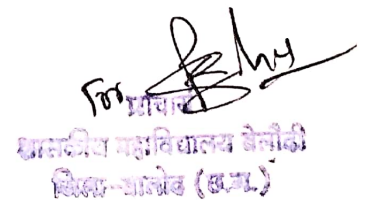 For
प्राचार्य
शासकीय महाविद्यालय बेलौदी
जिला-बालोद (छ.ग.)